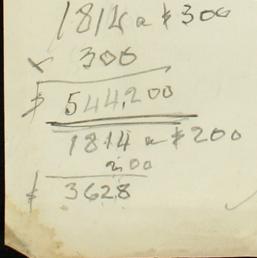 1814 a $300
× 300
$ 544,200
1814 a $200
200
$ 3628